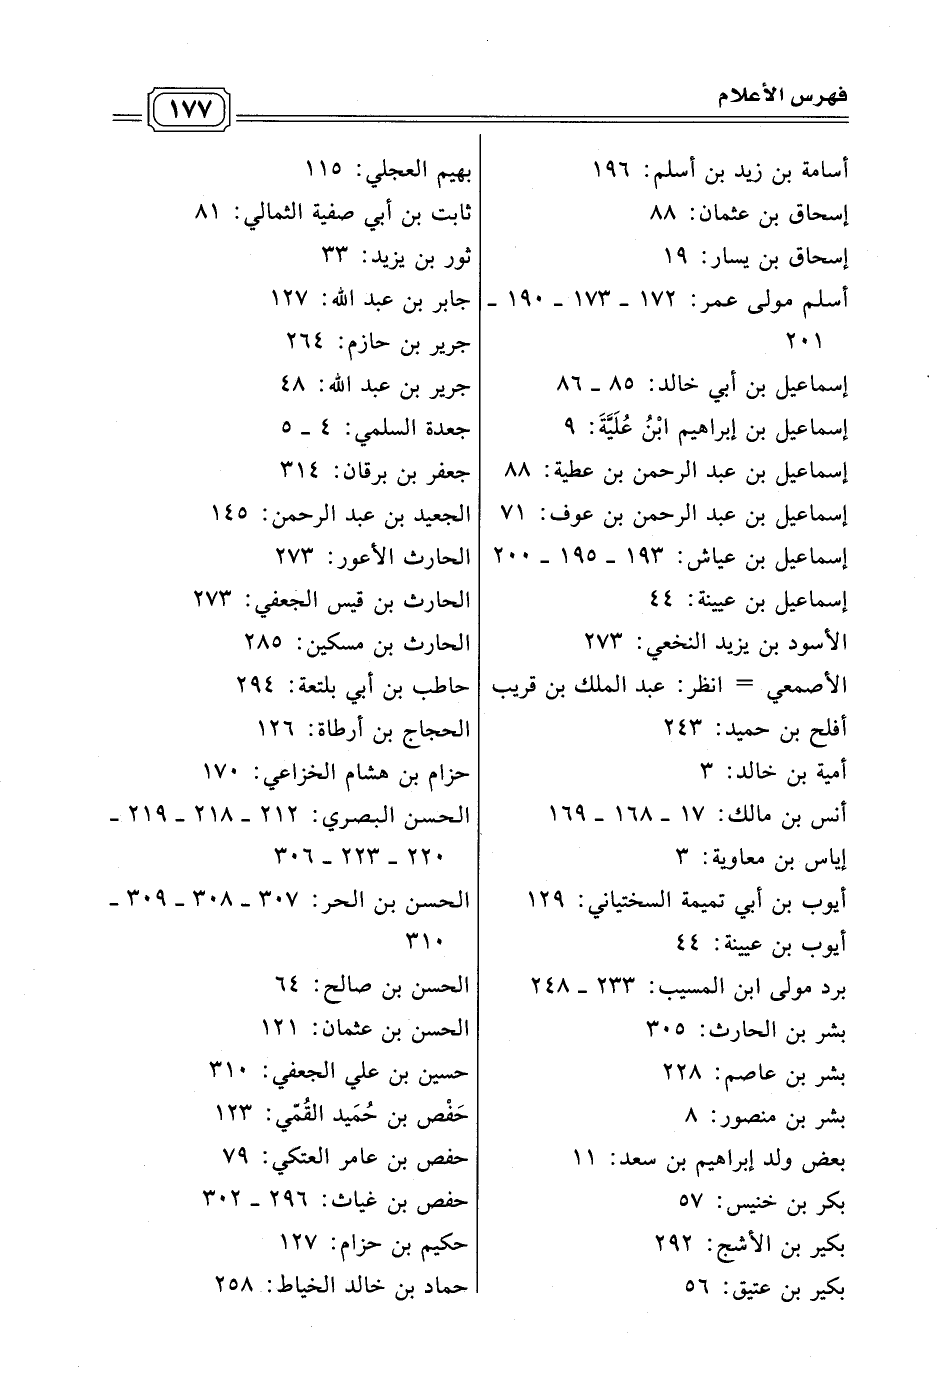 فهرس الأعلام
١٧٧
أسامة بن زيد بن أسلم: ١٩٦
إسحاق بن عثمان: ٨٨
إسحاق بن يسار: ١٩
أسلم مولى عمر: ١٧٢ ـ ١٧٣ ـ ١٩٠ ـ
٢٠١
إسماعيل بن أبي خالد: ٨٥ ـ ٨٦
إسماعيل بن إبراهيم ابْنُ عُلَيَّةَ: ٩
إسماعيل بن عبد الرحمن بن عطية: ٨٨
إسماعيل بن عبد الرحمن بن عوف: ٧١
إسماعيل بن عياش: ١٩٣ ـ ١٩٥ ـ ٢٠٠
إسماعيل بن عيينة: ٤٤
الأسود بن يزيد النخعي: ٢٧٣
الأصمعي = انظر: عبد الملك بن قريب
أفلح بن حميد: ٢٤٣
أمية بن خالد: ٣
أنس بن مالك: ١٧ ـ ١٦٨ ـ ١٦٩
إياس بن معاوية: ٣
أيوب بن أبي تميمة السختياني: ١٢٩
أيوب بن عيينة: ٤٤
برد مولى ابن المسيب: ٢٣٣ ـ ٢٤٨
بشر بن الحارث: ٣٠٥
بشر بن عاصم: ٢٢٨
بشر بن منصور: ٨
بعض ولد إبراهيم بن سعد: ١١
بكر بن خنيس: ٥٧
بكير بن الأشج: ٢٩٢
بكير بن عتيق: ٥٦
بهيم العجلي: ١١٥
ثابت بن أبي صفية الثمالي: ٨١
ثور بن يزيد: ٣٣
جابر بن عبد الله: ١٢٧
جرير بن حازم: ٢٦٤
جرير بن عبد الله: ٤٨
جعدة السلمي: ٤ ـ ٥
جعفر بن برقان: ٣١٤
الجعيد بن عبد الرحمن: ١٤٥
الحارث الأعور: ٢٧٣
الحارث بن قيس الجعفي: ٢٧٣
الحارث بن مسكين: ٢٨٥
حاطب بن أبي بلتعة: ٢٩٤
الحجاج بن أرطاة: ١٢٦
حزام بن هشام الخزاعي: ١٧٠
الحسن البصري: ٢١٢ ـ ٢١٨ ـ ٢١٩ ـ
٢٢٠ ـ ٢٢٣ ـ ٣٠٦
الحسن بن الحر: ٣٠٧ ـ ٣٠٨ ـ ٣٠٩ ـ
٣١٠
الحسن بن صالح: ٦٤
الحسن بن عثمان: ١٢١
حسين بن علي الجعفي: ٣١٠
حَفْص بن حُمَيد القُمّي: ١٢٣
حفص بن عامر العتكي: ٧٩
حفص بن غياث: ٢٩٦ ـ ٣٠٢
حكيم بن حزام: ١٢٧
حماد بن خالد الخياط: ٢٥٨